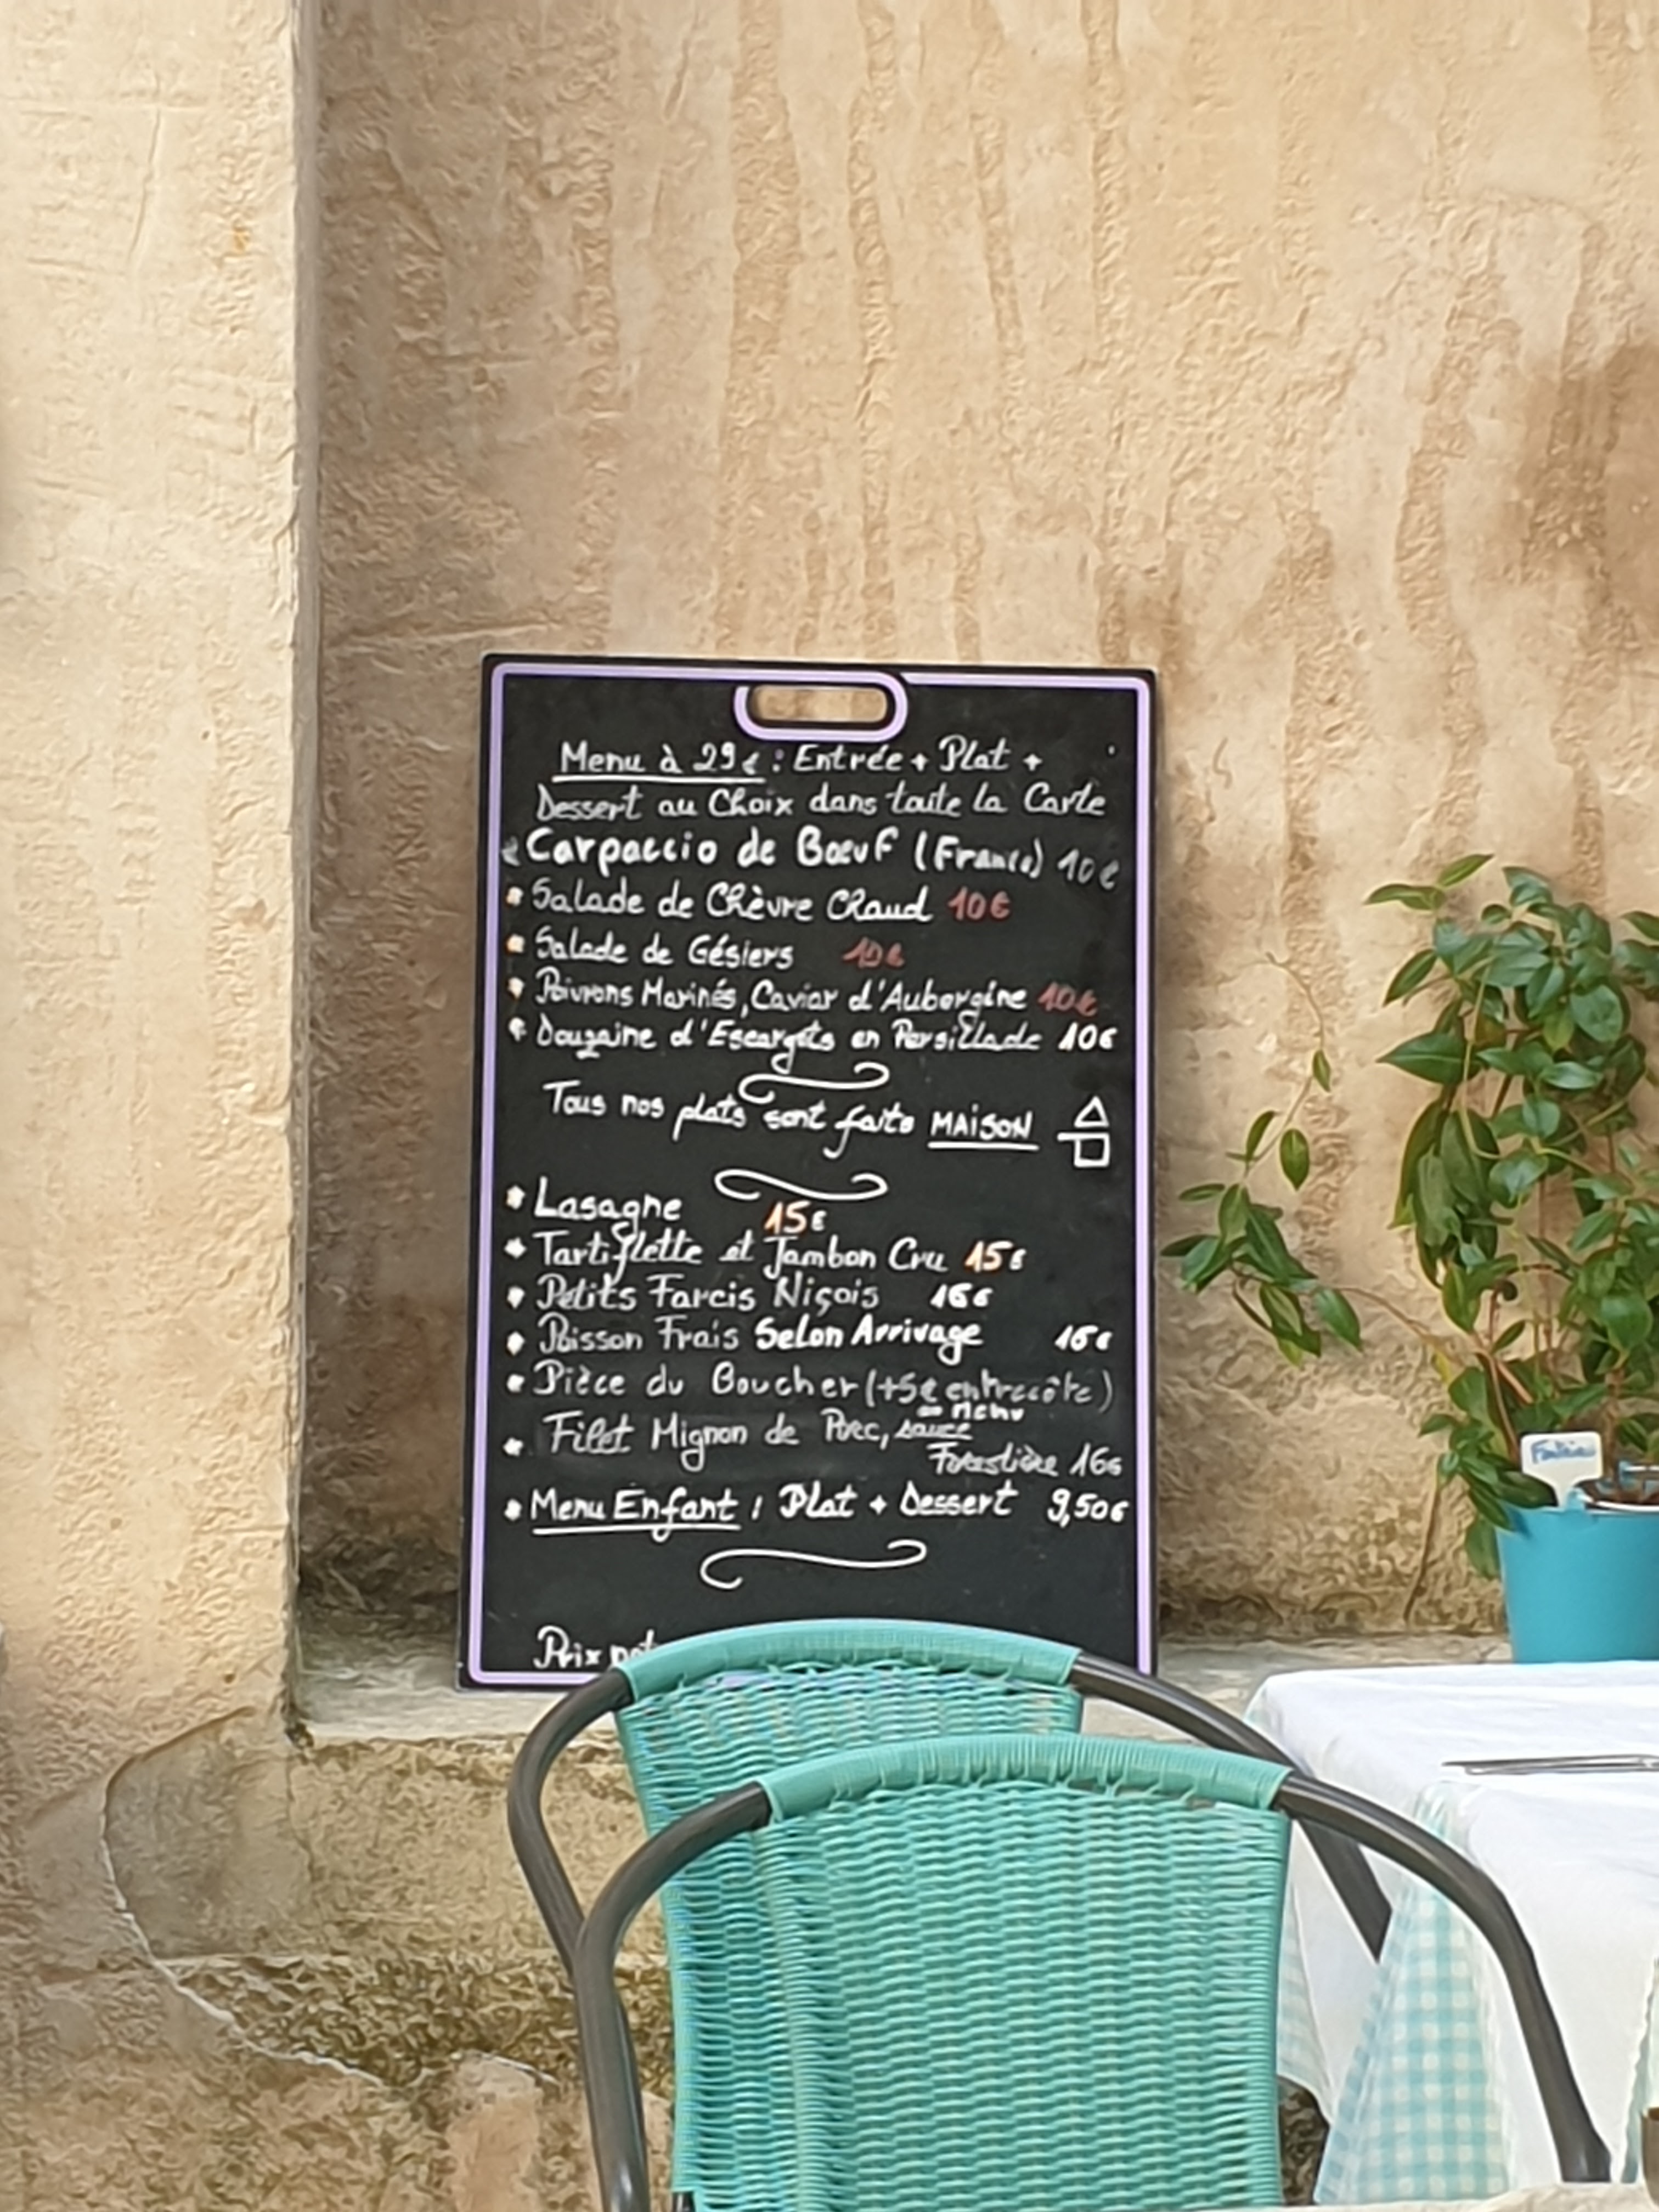 Menu à 29€ : Entrée + Plat +
Dessert au Choix dans toute la Carte
Carpaccio de Bœuf (France) 10€
Salade de Chèvre Chaud 10€
Salade de Gésiers 10€
Poivrons Marinés, Caviar d'Aubergine 10€
Douzaine d'Escargots en Persillade 10€
Tous nos plats sont faits MAISON
Lasagne 15€
Tartiflette et Jambon Cru 15€
Petits Farcis Niçois 16€
Poisson Frais Selon Arrivage 16€
Pièce du Boucher (+5€ entrecôte)
en Menu
Filet Mignon de Porc, sauce
Forestière 16€
Menu Enfant : Plat + Dessert 9,50€
Prix